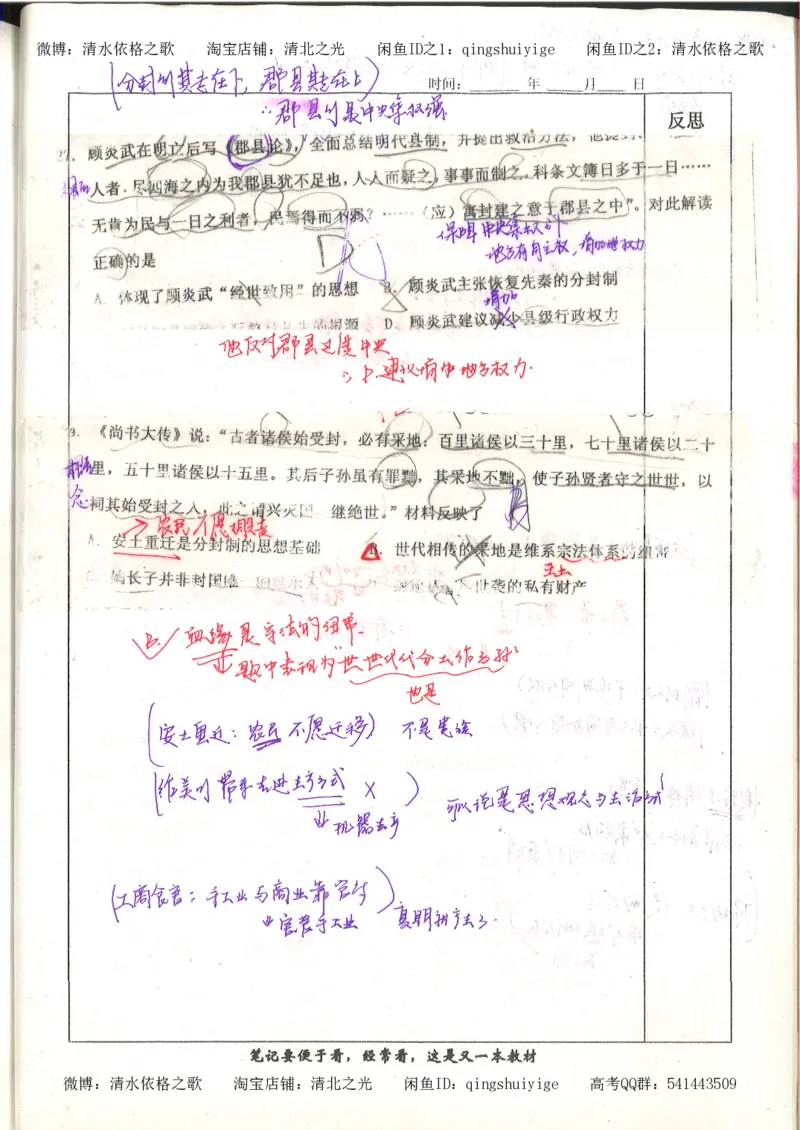 微博：清水依格之歌 淘宝店铺：清北之光 闲鱼ID之1：qingshuiyige 闲鱼ID之2：清水依格之歌
(分封制其专在下，郡县其专在上)
时间：______年______月____日
∴郡县制是中央集权
反思
27. 顾炎武在明亡后写《郡县论》，全面总结明代县制，并提出救治方法，
人者，尽四海之内为我郡县犹不足也，人人而疑之，事事而制之，科条文簿日多于一日……
无肯为民兴一日之利者，民焉得而不穷？……（应）寓封建之意于郡县之中”。对此解读
保障中央集权
地方有自主权，增加地权力
正确的是
D
A. 体现了顾炎武“经世致用”的思想 B. 顾炎武主张恢复先秦的分封制
增加
D. 顾炎武建议减少县级行政权力
他反对郡县过度中央
∴D.建议增加地方权力.
《尚书大传》说：“古者诸侯始受封，必有采地：百里诸侯以三十里，七十里诸侯以二十
里，五十里诸侯以十五里。其后子孙虽有罪黜，其采地不黜，使子孙贤者守之世世，以
祠其始受封之人，此之谓兴灭国、继绝世。”材料反映了
→农民不愿
A. 安土重迁是分封制的思想基础 B. 世代相传的采地是维系宗法体系的纽带
王土
嫡长子并非封国唯一 世袭的私有财产
B✓血缘是宗法的纽带.
题中表现为“世世代代
也是
(安土重迁：农民不愿迁移) 不是贵族
带来先进生产方式 ×)
机器生产
可以说是思想观念与生活方式
(工商食官：手工业与商业靠官府)
官营手工业
笔记要便于看，经常看，这是又一本教材
微博：清水依格之歌 淘宝店铺：清北之光 闲鱼ID：qingshuiyige 高考QQ群：541443509